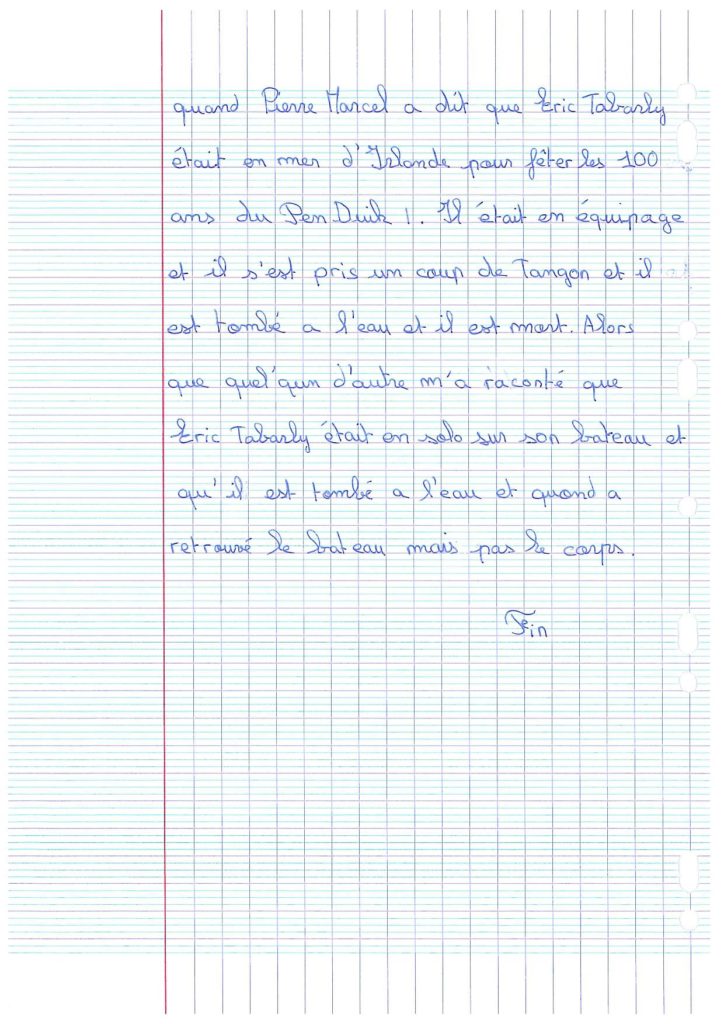 quand Pierre Marcel a dit que Eric Tabarly
était en mer d'Irlande pour fêter les 100
ans du Pen Duik 1. Il était en équipage
et il s'est pris un coup de Tangon et il
est tombé a l'eau et il est mort. Alors
que quel'qun d'autre m'a raconté que
Eric Tabarly était en solo sur son bateau et
qu'il est tombé a l'eau et quond a
retrouvé le bateau mais pas le corps.
Fin